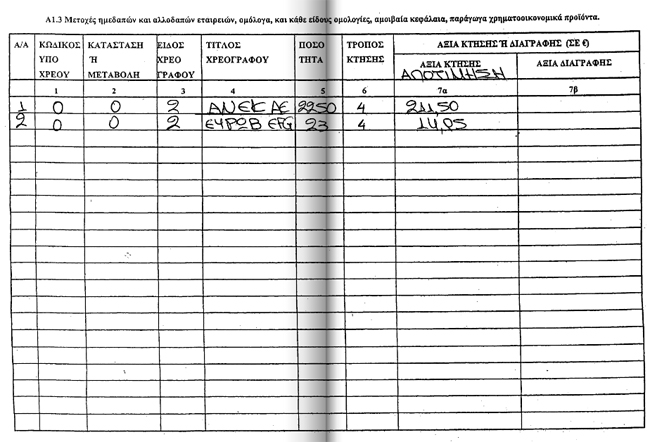 Α1.3 Μετοχές ημεδαπών και αλλοδαπών εταιρειών, ομόλογα, και κάθε είδους ομολογίες, αμοιβαία κεφάλαια, παράγωγα χρηματοοικονομικά προϊόντα.
Α/Α ΚΩΔΙΚΟΣ ΥΠΟ ΧΡΕΟΥ ΚΑΤΑΣΤΑΣΗ Ή ΜΕΤΑΒΟΛΗ ΕΙΔΟΣ ΧΡΕΟ ΓΡΑΦΟΥ ΤΙΤΛΟΣ ΧΡΕΟΓΡΑΦΟΥ ΠΟΣΟ ΤΗΤΑ ΤΡΟΠΟΣ ΚΤΗΣΗΣ ΑΞΙΑ ΚΤΗΣΗΣ Ή ΔΙΑΓΡΑΦΗΣ (ΣΕ €)
ΑΞΙΑ ΚΤΗΣΗΣ ΑΞΙΑ ΔΙΑΓΡΑΦΗΣ
ΑΠΟΤΙΜΗΣΗ
1 2 3 4 5 6 7α 7β
1 0 0 2 ΑΝΕΚ ΑΕ 2250 4 211,50
2 0 0 2 ΕΥΡΩΒ EFG 23 4 14,05